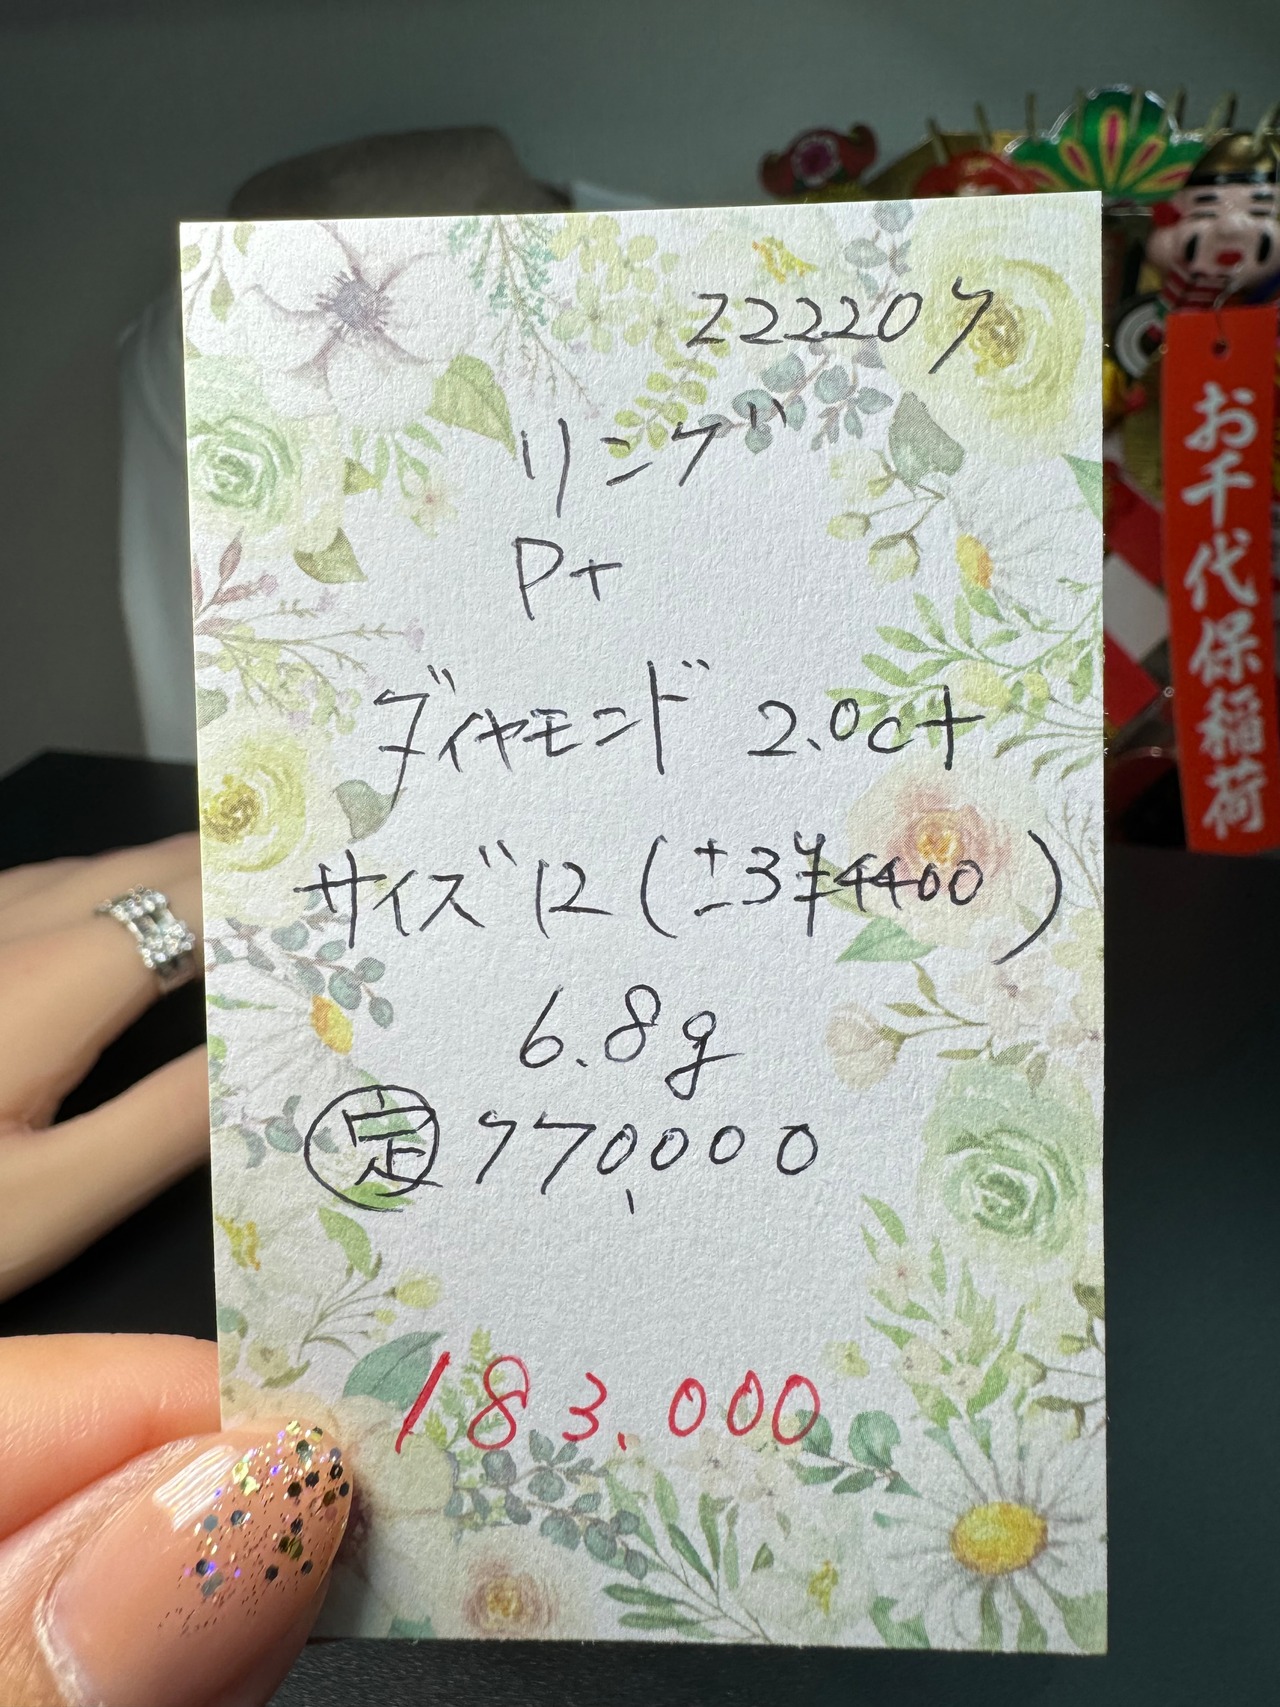 222207
リング
Pt
ダイヤモンド 2.0ct
サイズ12(±3¥4400)
6.8g
定 770,000
183.000
お千代保稲荷